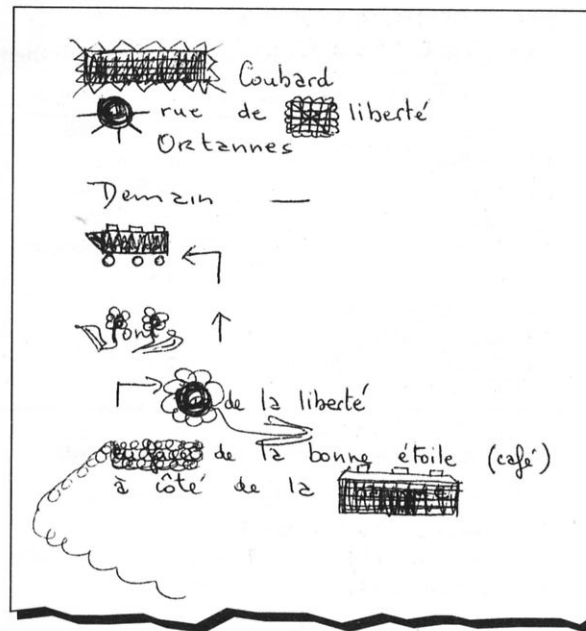 Coubard
rue de liberté
Ortannes
Demain —
de la liberté
de la bonne étoile (café)
à côté de la